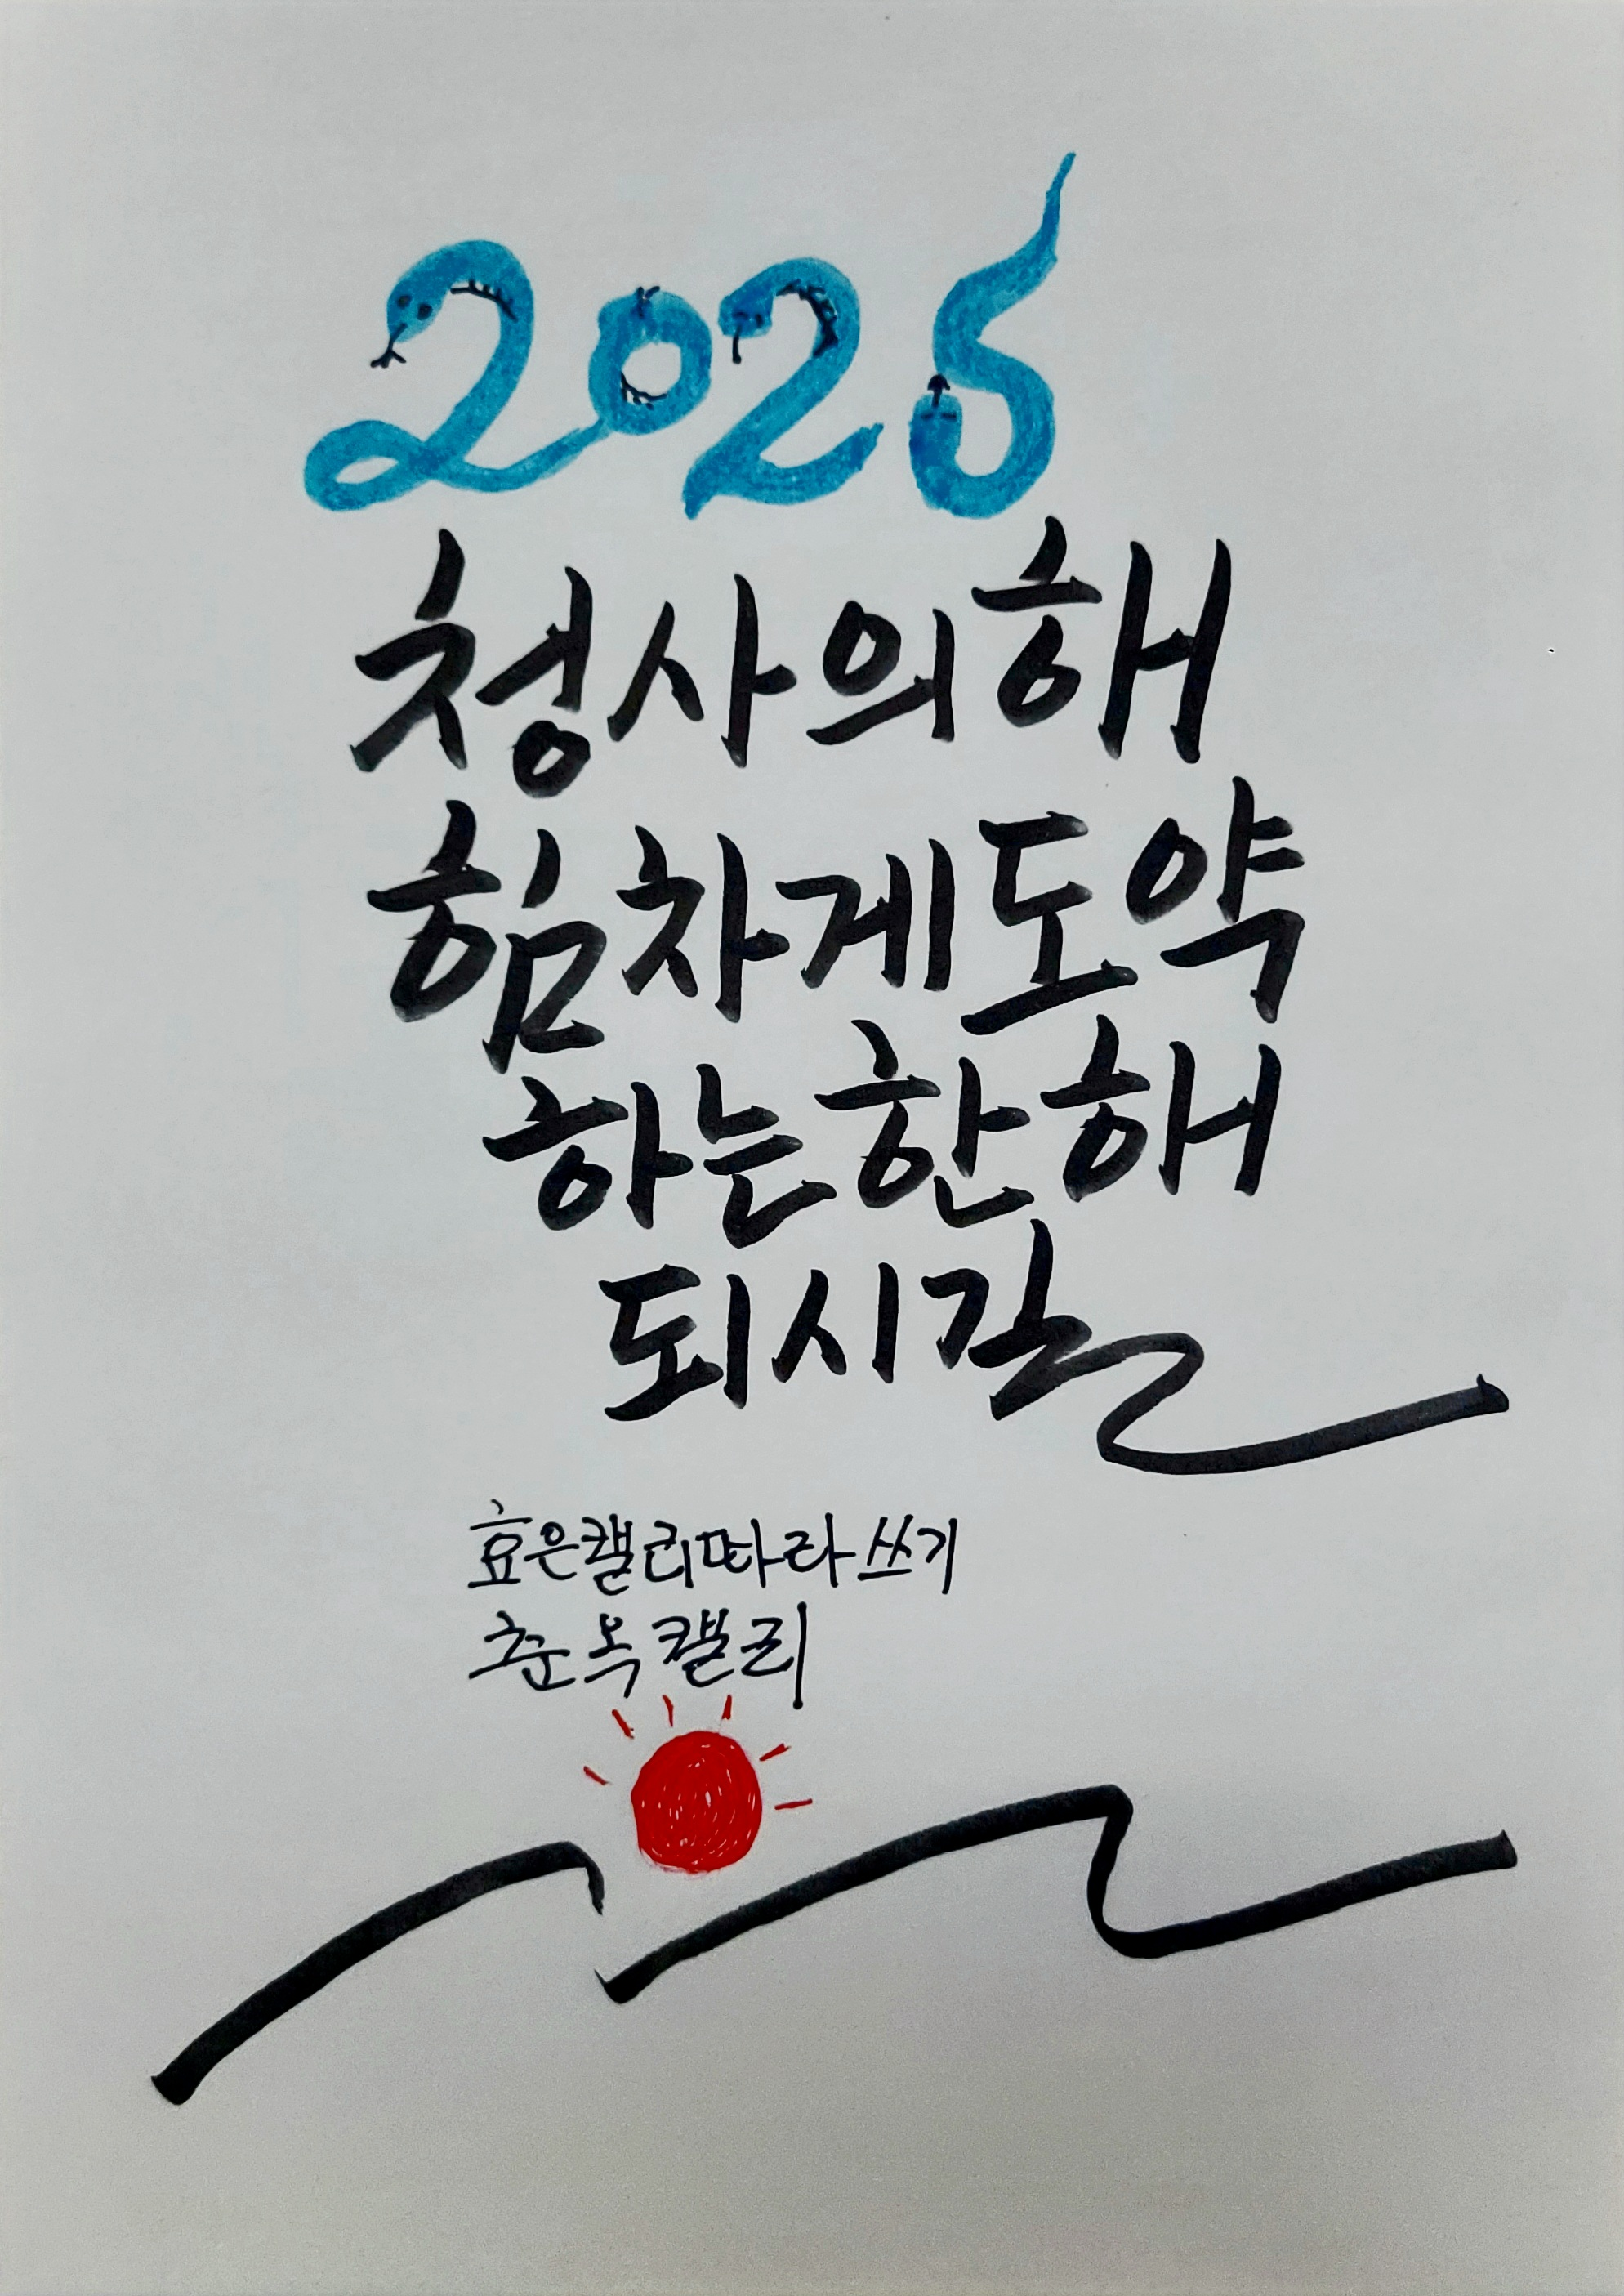 2025
청사의해
힘차게도약
하는한해
되시길
효은캘리따라쓰기
춘옥캘리